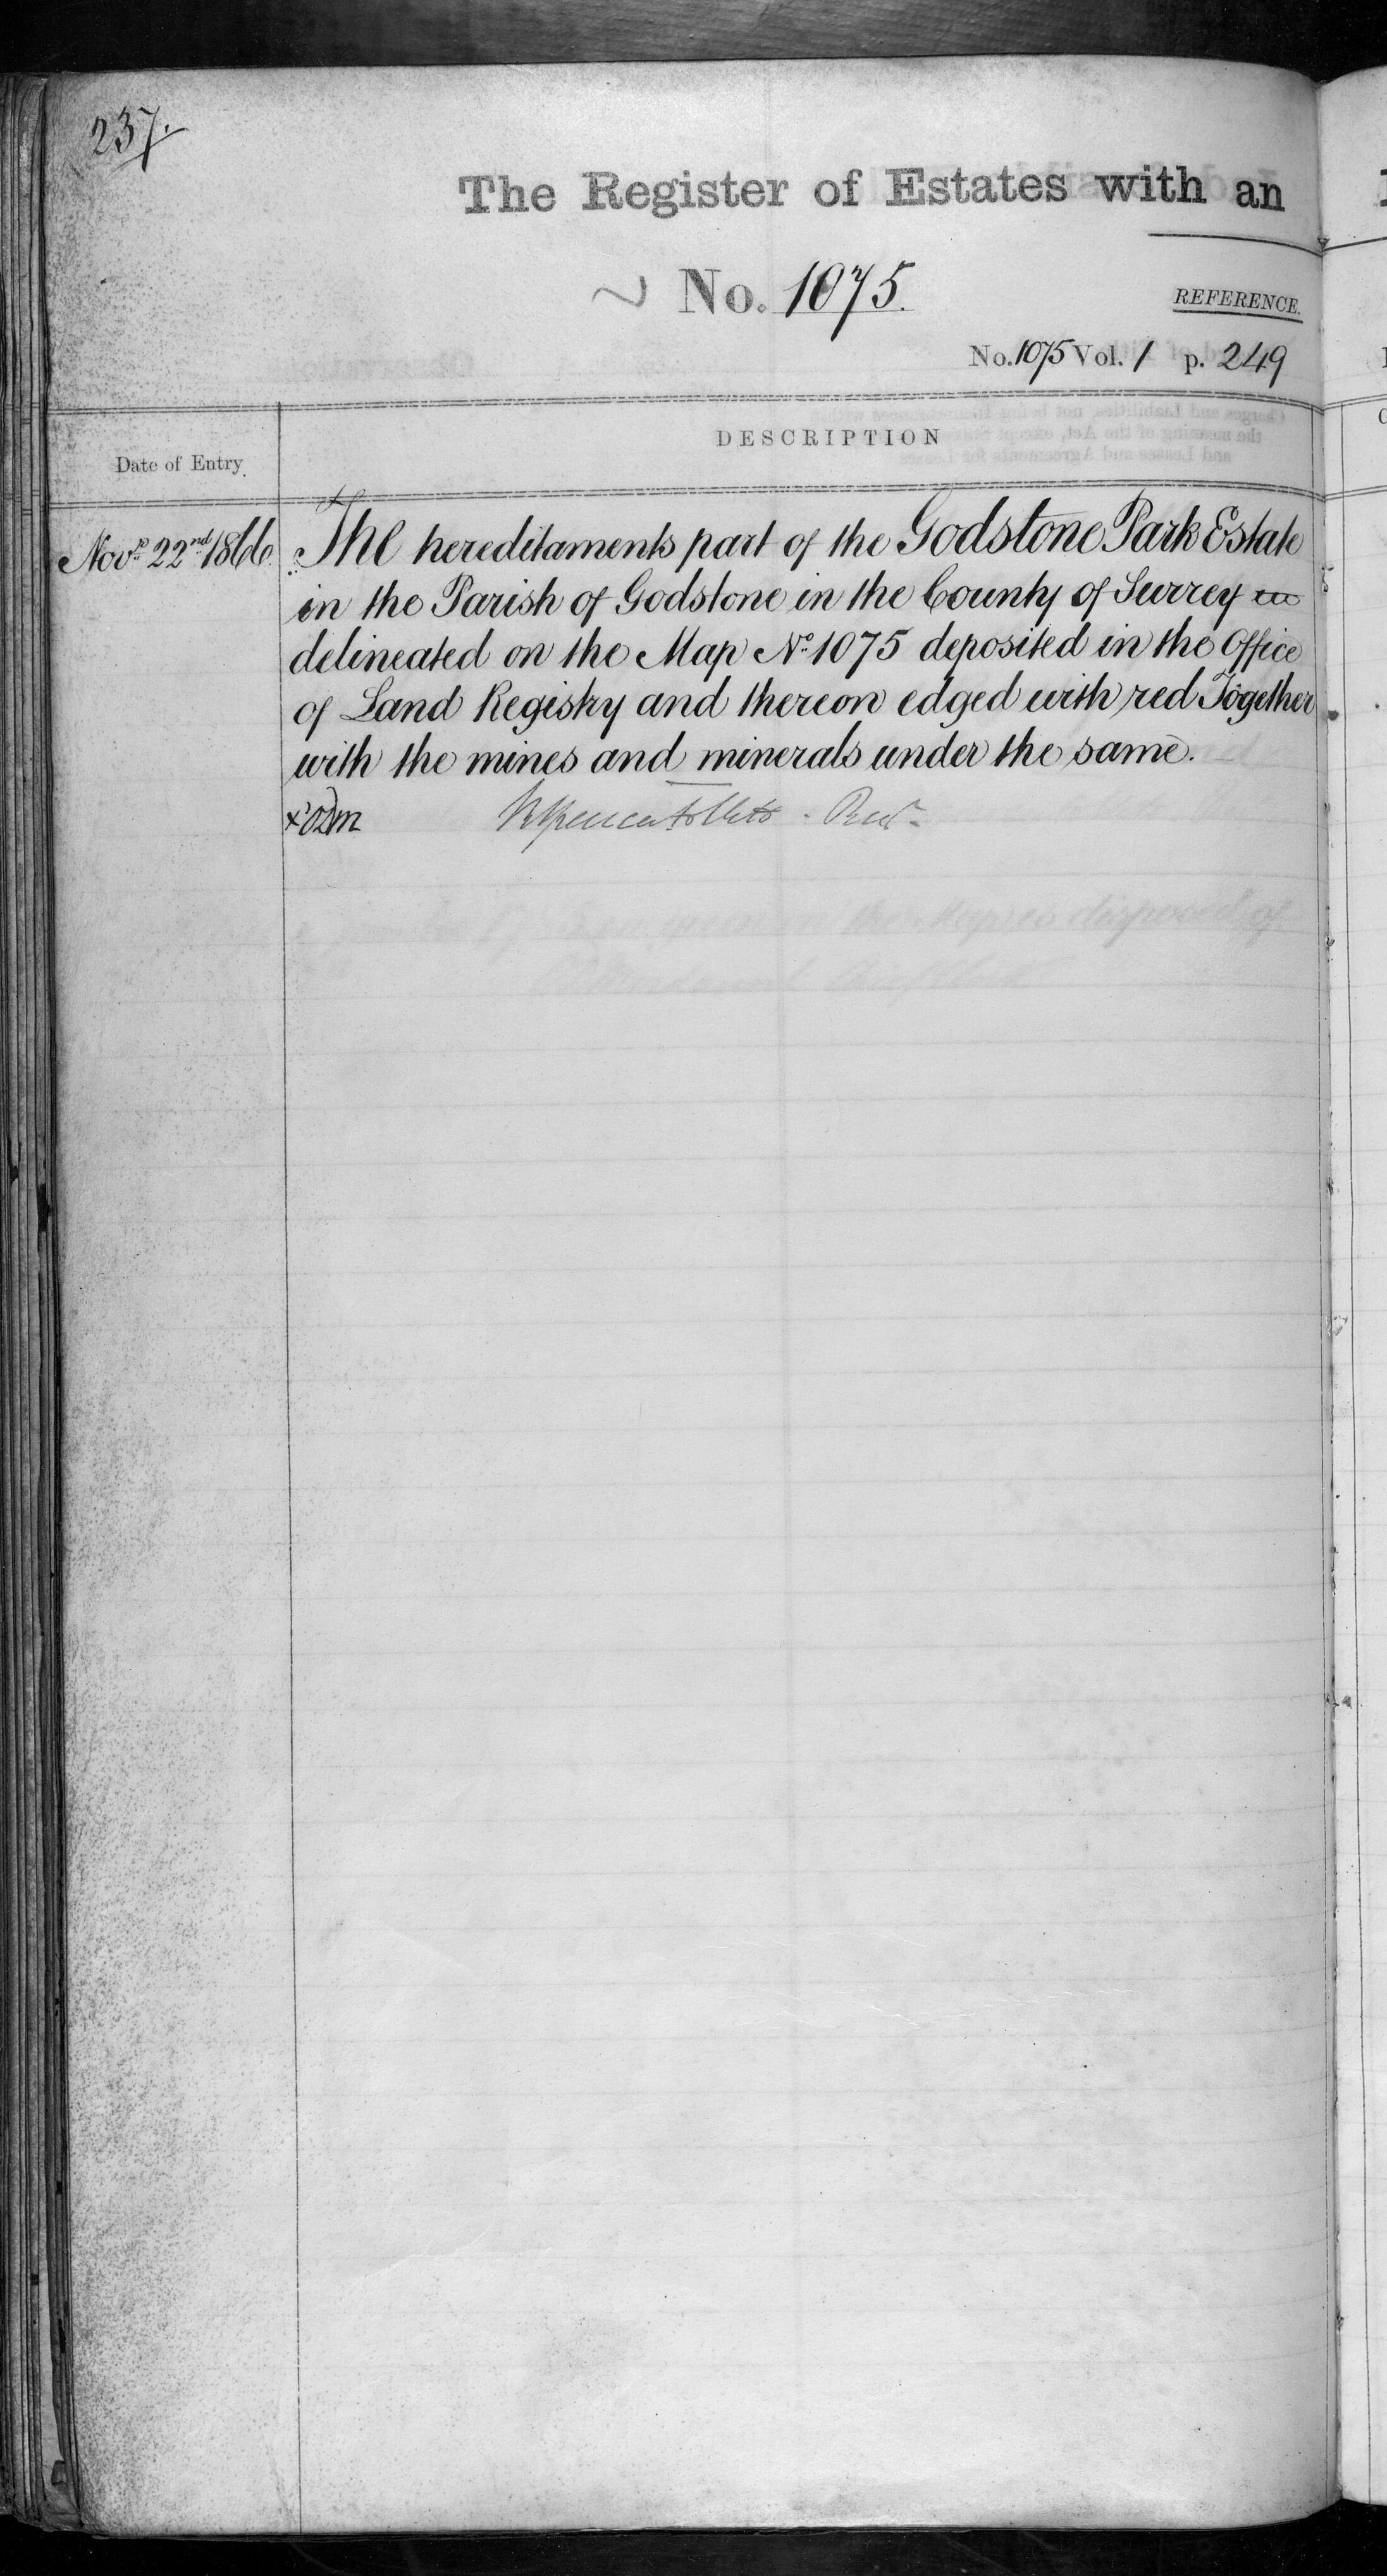 237.
The Register of Estates with an
No. 1075.
REFERENCE.
No. 1075 Vol. 1 p. 249
DESCRIPTION
Date of Entry.
Novr. 22nd 1866.
The hereditaments part of the Godstone Park Estate
in the Parish of Godstone in the County of Surrey
delineated on the Map No. 1075 deposited in the Office
of Land Registry and thereon edged with red Together
with the mines and minerals under the same.